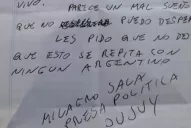 VIVO. PARECE UN MAL SUEÑO
QUE NO PUEDO DESPER
LES PIDO QUE NO DE
QUE ESTO SE REPITA CON
NINGUN ARGENTINO
MILAGRO SALA
PRESA POLITICA
JUJUY